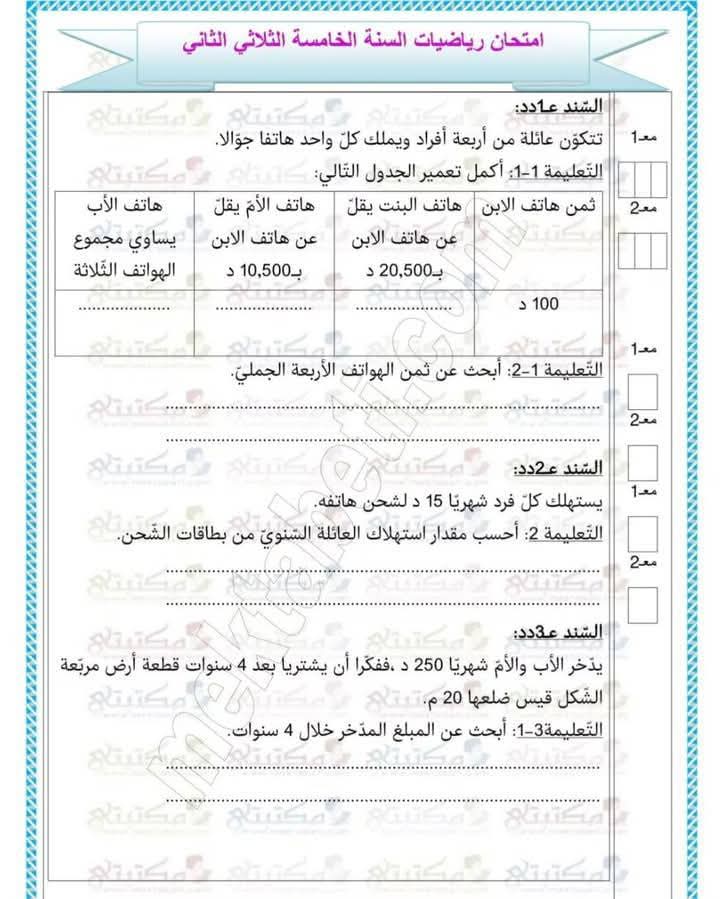 امتحان رياضيات السنة الخامسة الثلاثي الثاني
السّند عـ1دد:
معـ1
تتكوّن عائلة من أربعة أفراد ويملك كلّ واحد هاتفا جوّالا.
التّعليمة 1-1: أكمل تعمير الجدول التّالي:
معـ2
ثمن هاتف الابن
هاتف البنت يقلّ
عن هاتف الابن
بـ20,500 د
هاتف الأمّ يقلّ
عن هاتف الابن
بـ10,500 د
هاتف الأب
يساوي مجموع
الهواتف الثّلاثة
100 د
....................
....................
...................
معـ1
التّعليمة 1-2: أبحث عن ثمن الهواتف الأربعة الجمليّ.
معـ2
السّند عـ2دد:
معـ1
يستهلك كلّ فرد شهريّا 15 د لشحن هاتفه.
التّعليمة 2: أحسب مقدار استهلاك العائلة السّنويّ من بطاقات الشّحن.
معـ2
السّند عـ3دد:
يدّخر الأب والأمّ شهريّا 250 د ،ففكّرا أن يشتريا بعد 4 سنوات قطعة أرض مربّعة
الشّكل قيس ضلعها 20 م.
التّعليمة3-1: أبحث عن المبلغ المدّخر خلال 4 سنوات.
مكتبتي
mektabeti.com